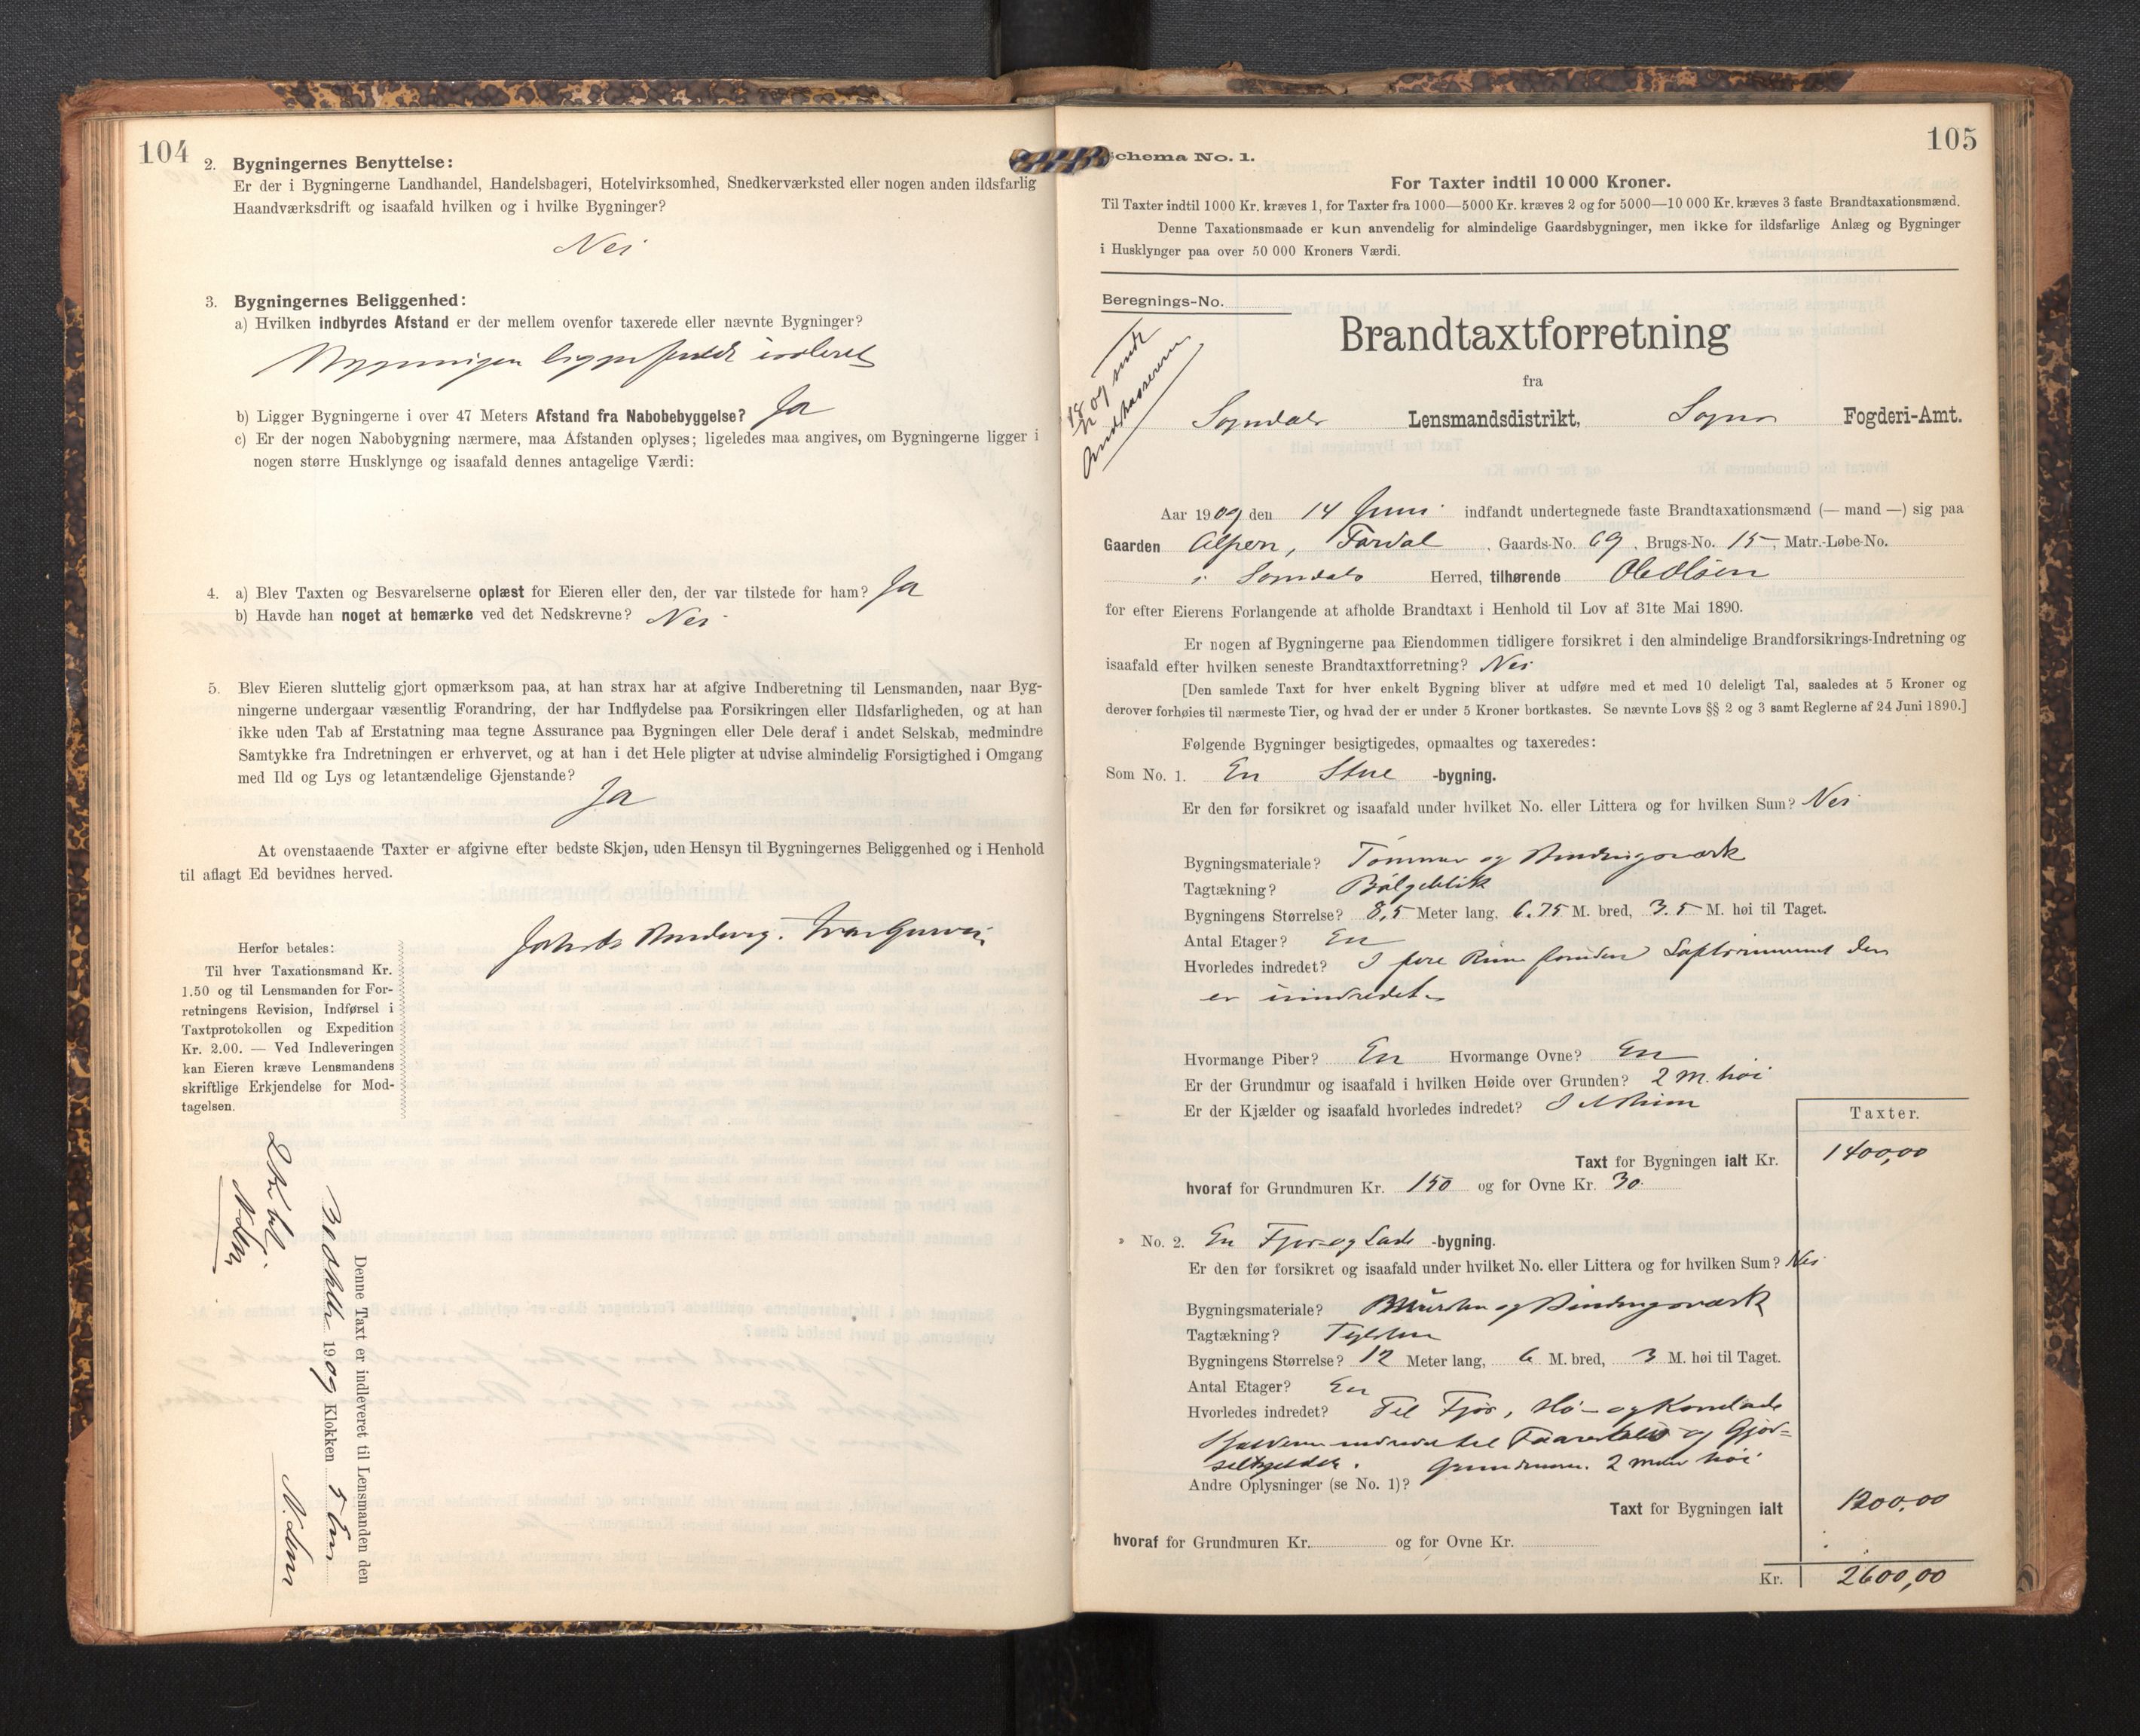 104
2. Bygningernes Benyttelse:
Er der i Bygningerne Landhandel, Handelsbageri, Hotelvirksomhed, Snedkerværksted eller nogen anden ildsfarlig
Haandværksdrift og isaafald hvilken og i hvilke Bygninger?
Nei
3. Bygningernes Beliggenhed:
a) Hvilken indbyrdes Afstand er der mellem ovenfor taxerede eller nævnte Bygninger?
Bygningen ligger isoleret
b) Ligger Bygningerne i over 47 Meters Afstand fra Nabobebyggelse? Ja
c) Er der nogen Nabobygning nærmere, maa Afstanden oplyses; ligeledes maa angives, om Bygningerne ligger i
nogen større Husklynge og isaafald dennes antagelige Værdi:
4. a) Blev Taxten og Besvarelserne oplæst for Eieren eller den, der var tilstede for ham? Ja
b) Havde han noget at bemærke ved det Nedskrevne? Nei
5. Blev Eieren sluttelig gjort opmærksom paa, at han strax har at afgive Indberetning til Lensmanden, naar Byg-
ningerne undergaar væsentlig Forandring, der har Indflydelse paa Forsikringen eller Ildsfarligheden, og at han
ikke uden Tab af Erstatning maa tegne Assurance paa Bygningen eller Dele deraf i andet Selskab, medmindre
Samtykke fra Indretningen er erhvervet, og at han i det Hele pligter at udvise almindelig Forsigtighed i Omgang
med Ild og Lys og letantændelige Gjenstande?
Ja
At ovenstaaende Taxter er afgivne efter bedste Skjøn, uden Hensyn til Bygningernes Beliggenhed og i Henhold
til aflagt Ed bevidnes herved.
Herfor betales:
Til hver Taxationsmand Kr.
1.50 og til Lensmanden for For-
retningens Revision, Indførsel i
Taxtprotokollen og Expedition
Kr. 2.00. — Ved Indleveringen
kan Eieren kræve Lensmandens
skriftlige Erkjendelse for Mod-
tagelsen.
Denne Taxt er indleveret til Lensmanden den
1909 Klokken 5
105
Schema No. 1.
For Taxter indtil 10 000 Kroner.
Til Taxter indtil 1000 Kr. kræves 1, for Taxter fra 1000—5000 Kr. kræves 2 og for 5000—10 000 Kr. kræves 3 faste Brandtaxationsmænd.
Denne Taxationsmaade er kun anvendelig for almindelige Gaardsbygninger, men ikke for ildsfarlige Anlæg og Bygninger
i Husklynger paa over 50 000 Kroners Værdi.
Beregnings-No.
Brandtaxtforretning
fra
Sogndals Lensmandsdistrikt, Sogns Fogderi-Amt.
Aar 1909 den 14 Juni indfandt undertegnede faste Brandtaxationsmænd (— mand —) sig paa
Gaarden Alpen, Fardal, Gaards-No. 69, Brugs-No. 15, Matr.-Løbe-No.
i Sogndals Herred, tilhørende Ole Olsen
for efter Eierens Forlangende at afholde Brandtaxt i Henhold til Lov af 31te Mai 1890.
Er nogen af Bygningerne paa Eiendommen tidligere forsikret i den almindelige Brandforsikrings-Indretning og
isaafald efter hvilken seneste Brandtaxtforretning? Nei
[Den samlede Taxt for hver enkelt Bygning bliver at udføre med et med 10 deleligt Tal, saaledes at 5 Kroner og
derover forhøies til nærmeste Tier, og hvad der er under 5 Kroner bortkastes. Se nævnte Lovs §§ 2 og 3 samt Reglerne af 24 Juni 1890.]
Følgende Bygninger besigtigedes, opmaaltes og taxeredes:
Som No. 1. En Stue -bygning.
Er den før forsikret og isaafald under hvilket No. eller Littera og for hvilken Sum? Nei
Bygningsmateriale? Tømmer og Bindingsværk
Tagtækning? Bølgeblik
Bygningens Størrelse? 8,5 Meter lang, 6.75 M. bred, 3.5 M. høi til Taget.
Antal Etager? En
Hvorledes indredet? I fire Rum foruden Loftsrummet der
er uindredet
Hvormange Piber? En Hvormange Ovne? En
Er der Grundmur og isaafald i hvilken Høide over Grunden? 2 M. høi
Er der Kjælder og isaafald hvorledes indredet?
Taxter.
Taxt for Bygningen ialt Kr. 1400,00
hvoraf for Grundmuren Kr. 150 og for Ovne Kr. 30
» No. 2. En Fjøs- og Lade -bygning.
Er den før forsikret og isaafald under hvilket No. eller Littera og for hvilken Sum? Nei
Bygningsmateriale? Mursten og Bindingsværk
Tagtækning?
Bygningens Størrelse? 12 Meter lang, 6 M. bred, 3 M. høi til Taget.
Antal Etager? En
Hvorledes indredet? Til Fjøs, Hø- og Kornlade
Kjælderen indredet til og Gjød-
selkjelder. Grundmuren 2 Meter høi
Andre Oplysninger (se No. 1)?
Taxt for Bygningen ialt 1200,00
hvoraf for Grundmuren Kr. og for Ovne Kr.
Kr. 2600,00